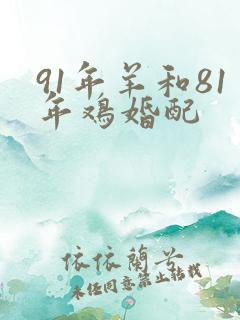 91年羊和81
年鸡婚配
依依蘭兮
未经同意禁止转载